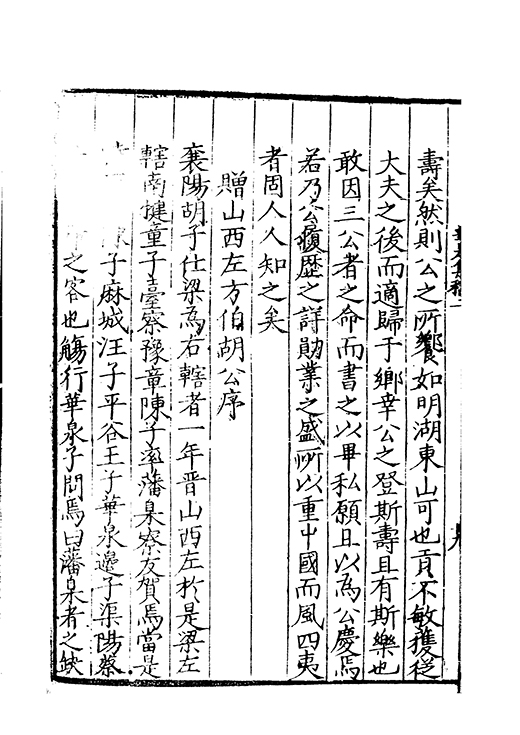 壽矣然則公之所饗如明湖東山可也貢不敏獲從
大夫之後而適歸于鄉幸公之登斯壽且有斯樂也
敢因三公者之命而書之以畢私願且以為公慶焉
若乃公履歷之詳勛業之盛所以重中國而風四夷
者固人人知之矣
贈山西左方伯胡公序
襄陽胡子仕梁為右轄者一年晋山西左於是梁左
轄南揵童子臺察豫章陳子率藩臬寮友賀焉當是
子麻城汪子平谷王子華泉邊子渠陽蔡
之客也觴行華泉子問焉曰藩臬者之缺